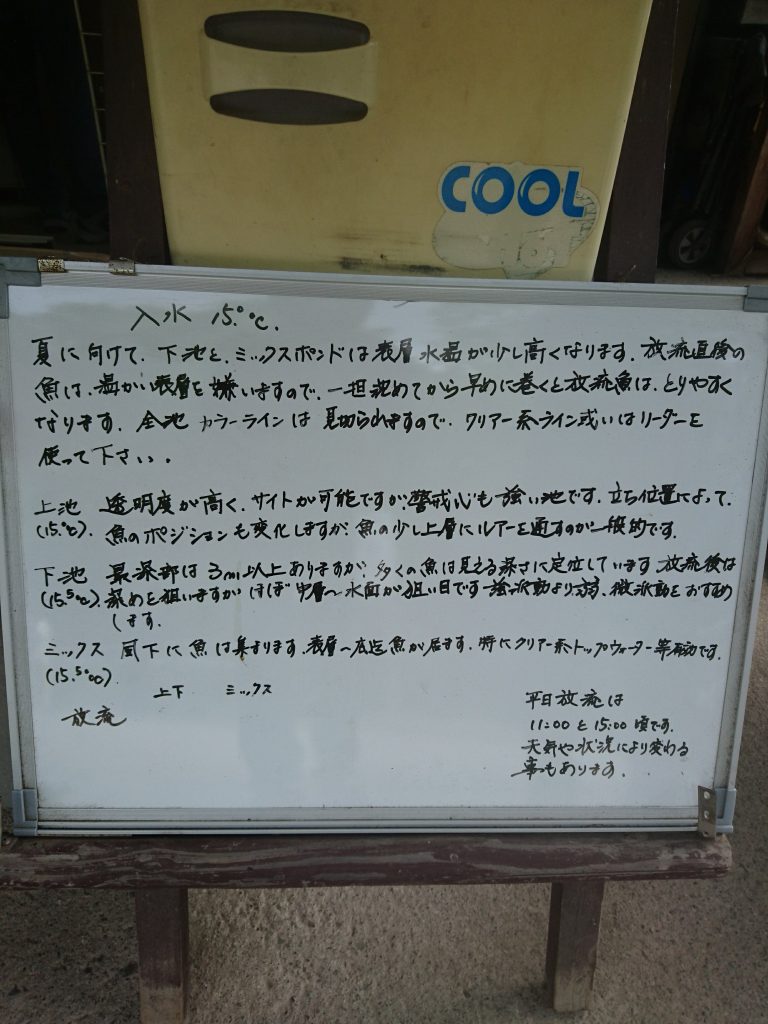 COOL
入水 15.°℃.
夏に向けて、下池と、ミックスポンドは表層水温が少し高くなります。放流直後の
魚は、温かい表層を嫌いますので、一担沈めてから早めに巻くと放流魚は、とりやすく
なります。全池 カラーラインは 見切られますので、クリアー系ライン或いはリーダーを
使って下さい。
上池 透明度が高く、サイトが可能ですが、警戒心も強い池です。立ち位置によって、
(15.°℃). 魚のポジションも変化しますが、魚の少し上層にルアーを通すのが一般的です。
下池 最深部は3m以上ありますが、多くの魚は見える深さに定位しています。放流後は
(15.5℃). 深めを狙いますがほぼ中層〜水面が狙い目です 強波動より弱、微波動をおすすめ
します。
ミックス 風下に魚は集まります。表層〜底迄魚が居ます。特にクリアー系トップウォーター等有効です。
(15.5℃).
上下 ミックス
放流
平日放流は
11:00と15:00頃です。
天気や状況により変わる
事もあります。